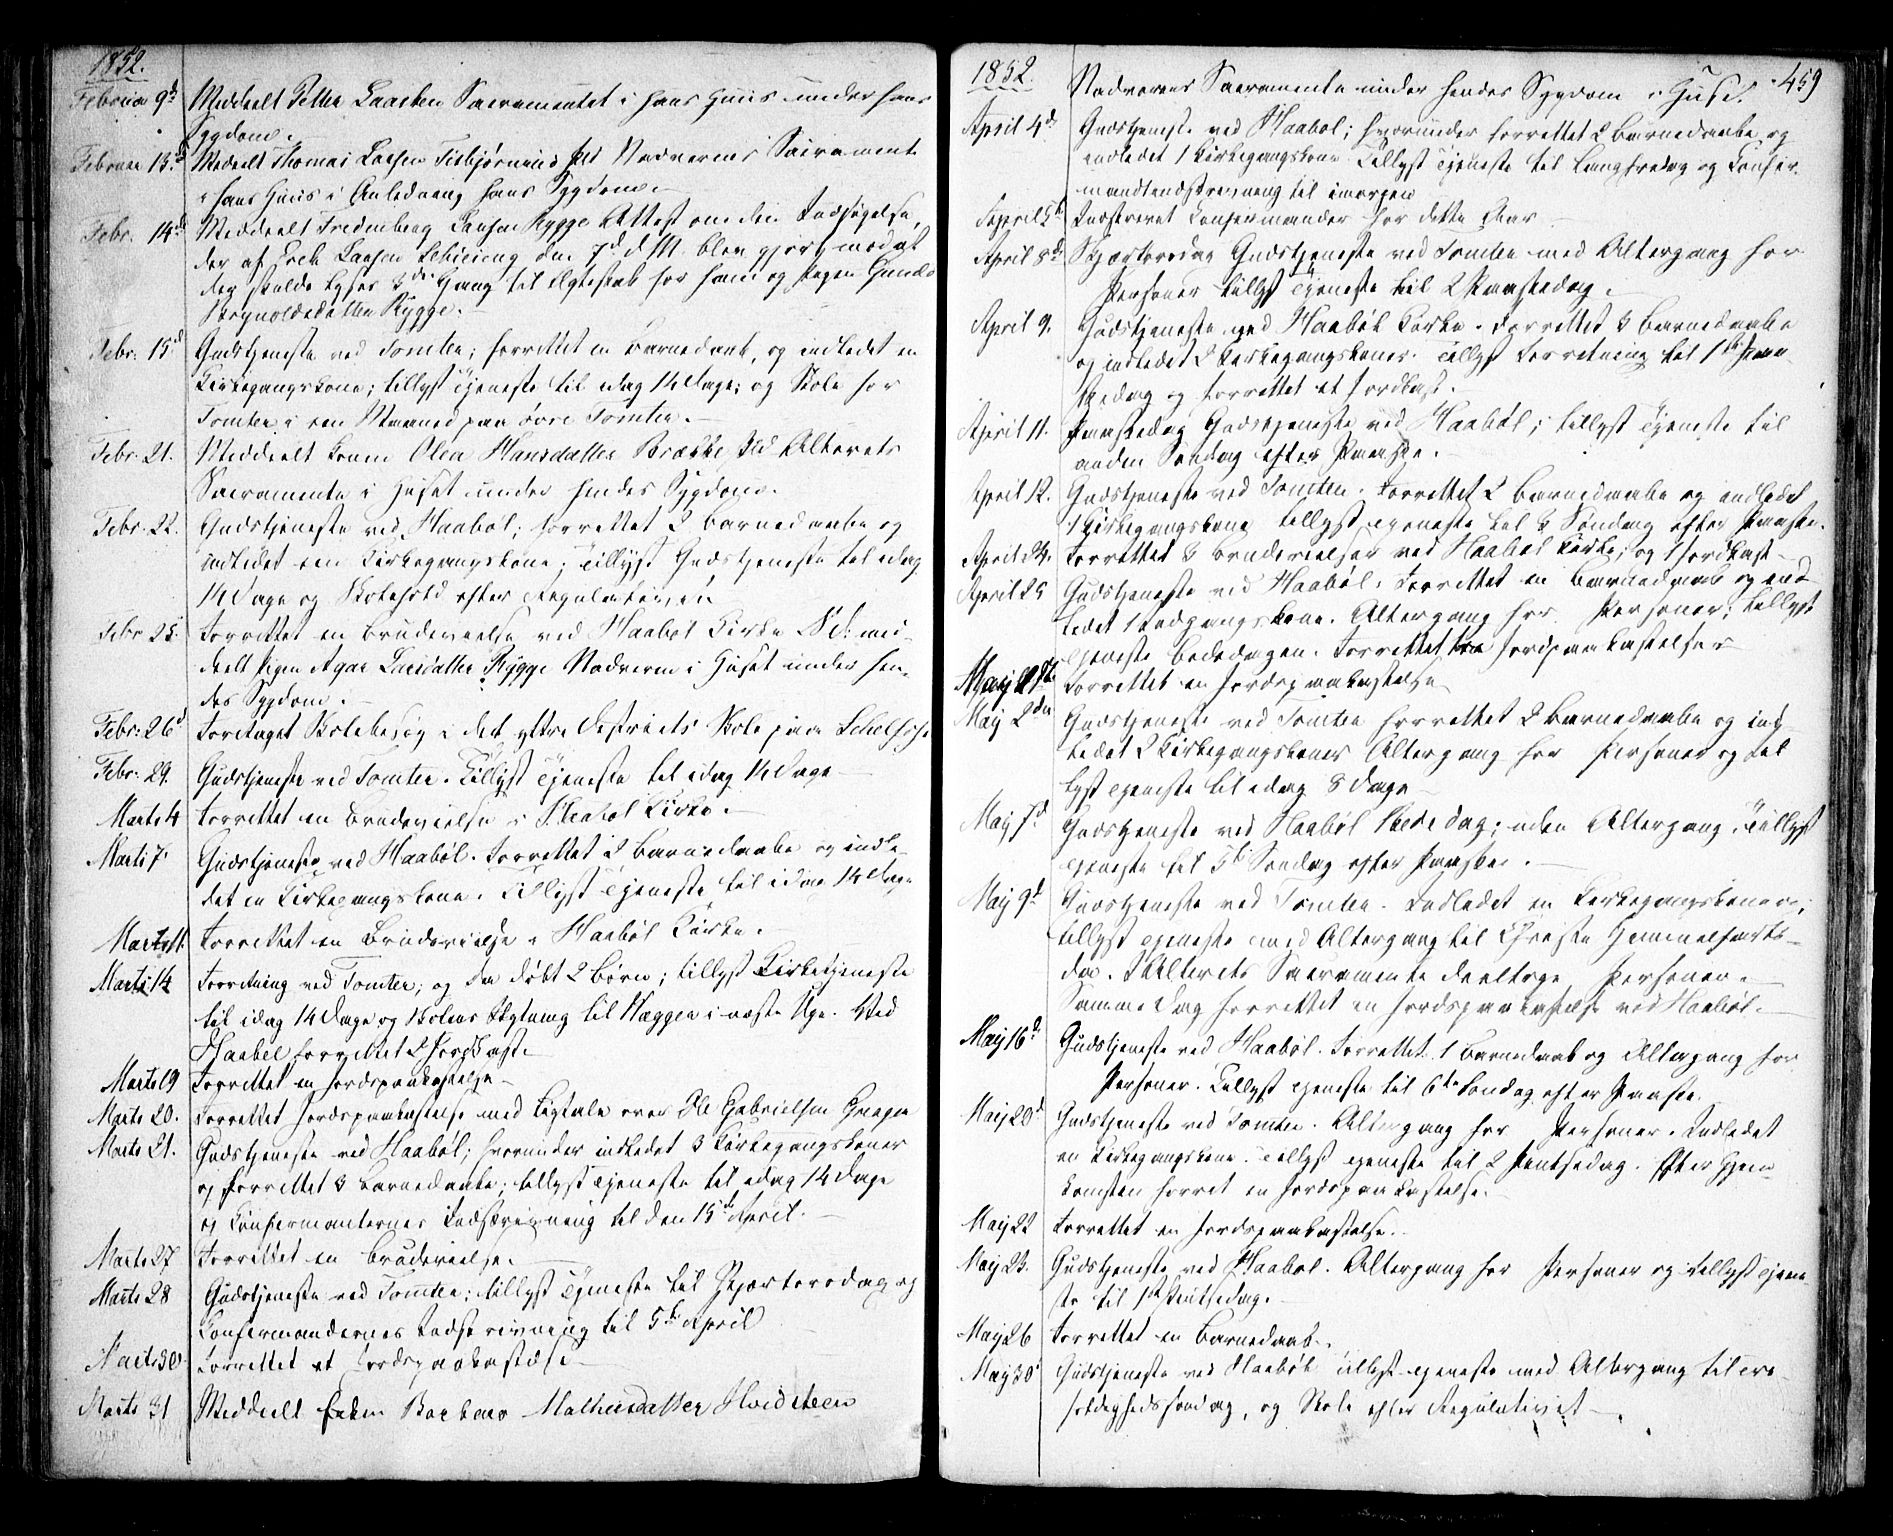 1852.
Februar 9d Meddeelt Petter Laarsen Sacramentet i hans Huus under hans
Sygdom.
Februar 13d Meddeelt Thomas Larsen Nadverens Sacramente
i hans Huus i Anledning hans Sygdom.
Febr. 14d Meddeelt Larsen Rygge Attest om den Indsigelse,
der af Erik Larsen den 7d d. M. blev gjort mod at
der skulde lyses 3die Gang til Ægteskab for ham og Pigen
Rygge.
Febr: 15d Gudstjeneste ved Tomter; forrettet en Barnedaab, og indledet en
Kirkegangskone; tillyst Tjeneste til idag 14 Dage; og Skole for
Tomter i een Maaned paa øvre Tomter.
Febr. 21. Meddeelt Konen Olea Hansdatter Brække Alterets
Sacramente i Huset under hendes Sygdom.
Febr. 22. Gudstjeneste ved Haabøl; forrettet 2 Barnedaabe og
indledet een Kirkegangskone; Tillyst Gudstjeneste til idag
14 Dage og Skolehold efter
Febr 25. Forrettet en Brudevielse ved Haabøl Kirke. med-
deelt Pigen Larsdatter Rygge Nadveren i Huset under hen-
des Sygdom.
Febr: 26d Foretaget Skolebesøg i det ydre Districts Skole paa
Febr: 29. Gudstjeneste ved Tomter. Tillyst Tjeneste til idag 14 Dage
Marts 4 Forrettet en Brudevielse i Haabøl Kirke.
Marti 7. Gudstjeneste ved Haabøl. Forrettet 2 Barnedaabe og indle-
det en Kirkegangskone. Tillyst Tjeneste til idag 14 Dage
Marts 11. Forrettet en Brudevielse i Haabøl Kirke.
Marti 14 Forretning ved Tomter; og da døbt 2 Børn; tillyst Kirketjeneste
til idag 14 Dage og Skolens Flytning til Haggen i næste Uge. Ved
Haabøl forrettet 2 Jordkast.
Marts 19 Forrettet en Jordspaakastelse
Marts 20. Forrettet Jordspaakastelse med Ligtale over Ole Gabrielsen
Marts 21. Gudstjeneste ved Haabøl; hvorunder indledet 3 Kirkegangskoner
og forrettet 3 Barnedaabe; tillyst Tjeneste til idag 14 Dage
og Konfirmanternes Indskrivning til den 15de April.
Marts 27 Forrettet en Brudevielse.
Marts 28 Gudstjeneste ved Tomter; tillyst Tjeneste til Skjærtorsdag og
Konfirmandernes Indskrivning til 5te April
Marts 30 Forrettet et Jordspaakastelse
Marts 31 Meddeelt Enken Barbara Mathisdatter Hvidsteen
1852. 459
Nadverens Sacramente under hendes Sygdom i Huset.
April 4d Gudstjeneste ved Haabøl; hvorunder forrettet 2 Barnedaabe og
indledet 1 Kirkegangskone. Tillyst Tjeneste til Langfredag og Konfir-
mandindskrivning til imorgen
April 5te Indskrevet Konfirmander for dette Aar
April 8d Skjærtorsdag Gudstjeneste ved Tomter med Altergang for
Personer tillyst Tjeneste til 2 Paaskedag.
April 9. Gudstjeneste ved Haabøl Kirke. Forrettet 3 Barnedaabe
og indledet 2 Kirkegangskoner. Tillyst Forretning til 1ste Paa-
skedag og forrettet et Jordkast.
April 11. Paaskedag Gudstjeneste ved Haabøl; tillyst Tjeneste til
anden Søndag efter Paaske.
April 12. Gudstjeneste ved Tomter. Forrettet 2 Barnedaabe og indledet
1 Kirkegangskone tillyst Tjeneste til 3 Søndag efter Paaske.
April 24. Forrettet 3 Brudevielser ved Haabøl Kirke; og 1 Jordkast
April 25 Gudstjeneste ved Haabøl. Forrettet en Barnedaab og ind-
ledet 1 Indgangskone. Altergang for Personer; tillyst
Tjeneste Bededagen. Forrettet Jordspaakastelser
Maij Forrettet en Jordspaakastelse
Maij 2den Gudstjeneste ved Tomter forrettet 2 Barnedaabe og ind-
ledet 2 Kirkegangskoner Altergang for Personer og til-
lyst Tjeneste til idag 8 Dage
Maij 7d Gudstjeneste ved Haabøl Bededag; uden Altergang. Tillyst
Tjeneste til 5te Søndag efter Paaske.
Maij 9d Gudstjeneste ved Tomter. Indledet en Kirkegangskone;
tillyst Tjeneste med Altergang til Christi Himmelfarts-
dag. I Alterets Sacramente deeltoge Personer.
Samme Dag forrettet en Jordspaakastelse ved Haabøl.
Maij 16d Gudstjeneste ved Haabøl. Forrettet 1 Barnedaab og Altergang for
Personer. Tillyst Tjeneste til 6te Søndag efter Paaske.
Maij 20d Gudstjeneste ved Tomter. Altergang for Personer. Indledet
en Kirkegangskone. Tillyst Tjeneste til 2 Pintsedag. Efter Hjem-
komsten forret en Jordspaakastelse.
Maij 22 Forrettet en Jordspaakastelse.
Maij 23. Gudstjeneste ved Haabøl. Altergang for Personer og tillyst Tjene-
ste til 1ste Pintsedag.
Maij 26 Forrettet en Barnedaab.
Maij 30 Gudstjeneste ved Haabøl tillyst Tjeneste med Altergang til Tre-
foldighedssøndag, og Skole efter Regulativet